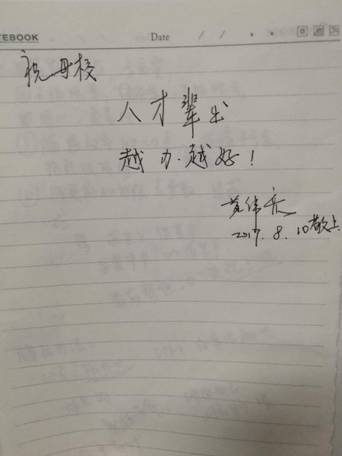 TEBOOK
Date / /
祝母校
人才辈出
越办越好！
黄伟亮
2017.8.10敬上